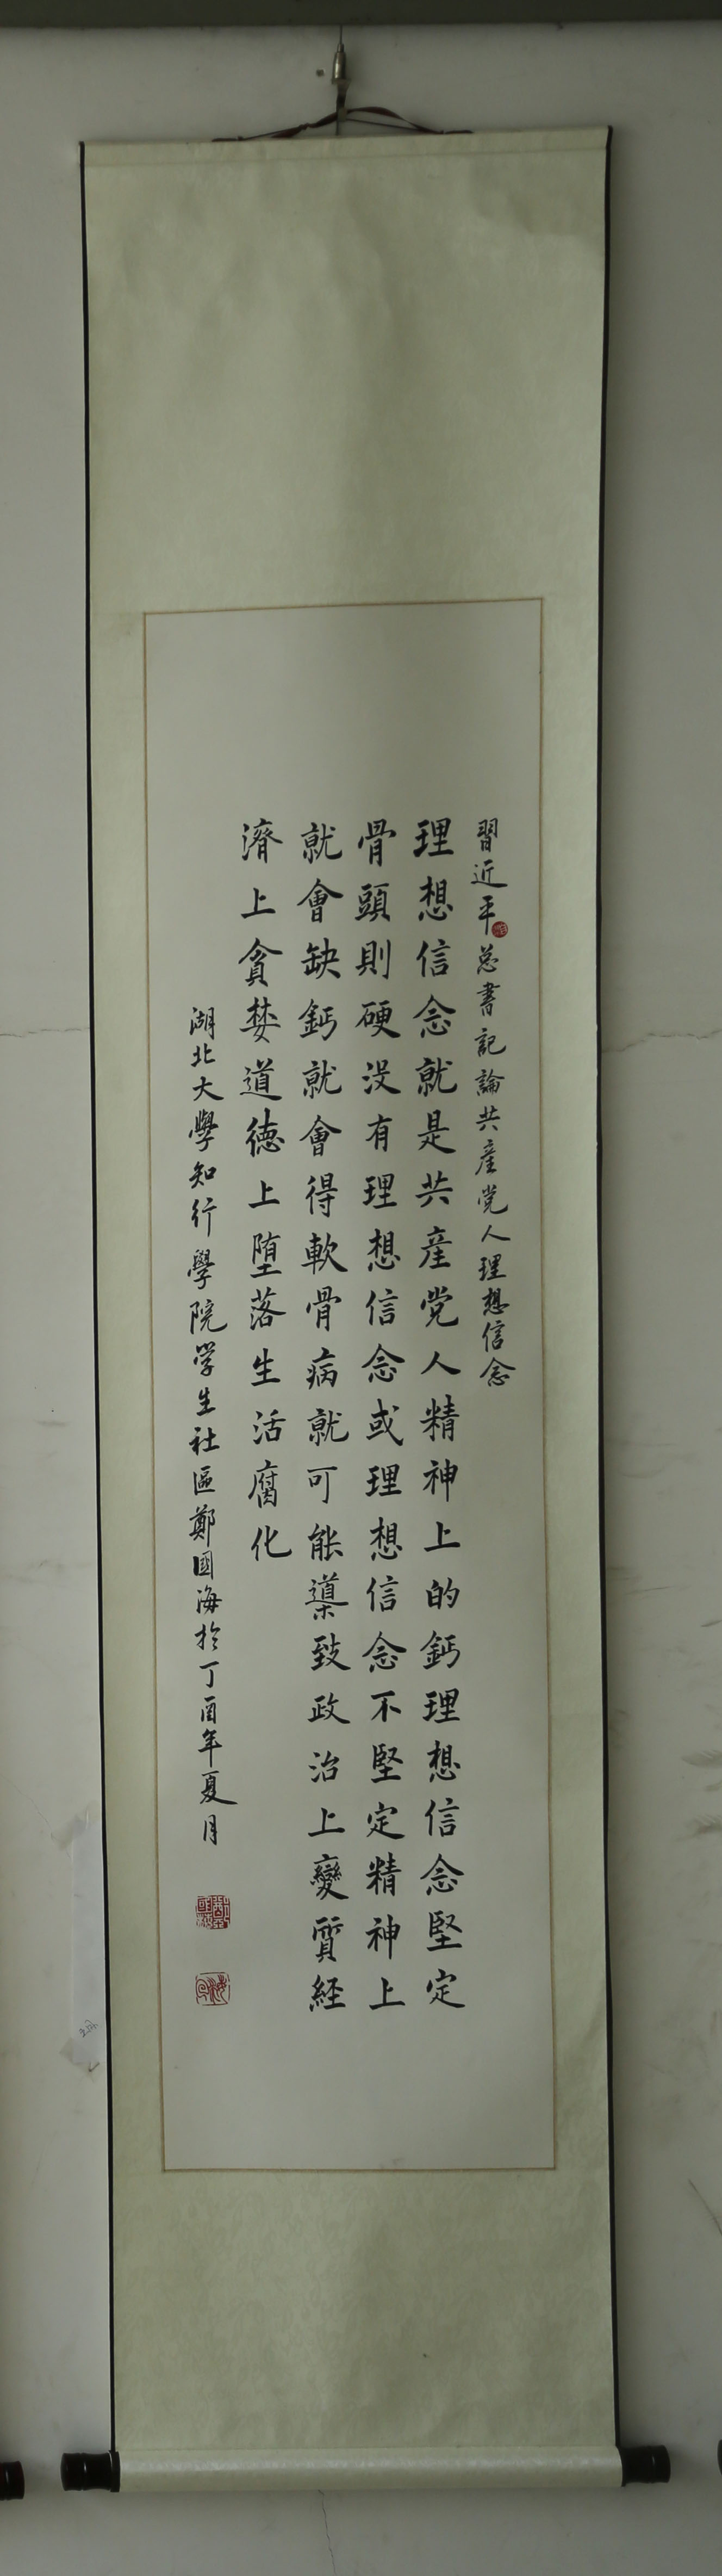 習近平总書記論共産党人理想信念
理想信念就是共産党人精神上的鈣理想信念堅定
骨頭則硬没有理想信念或理想信念不堅定精神上
就會缺鈣就會得軟骨病就可能導致政治上變質経
濟上貪婪道德上堕落生活腐化
湖北大學知行學院学生社區鄭國海於丁酉年夏月